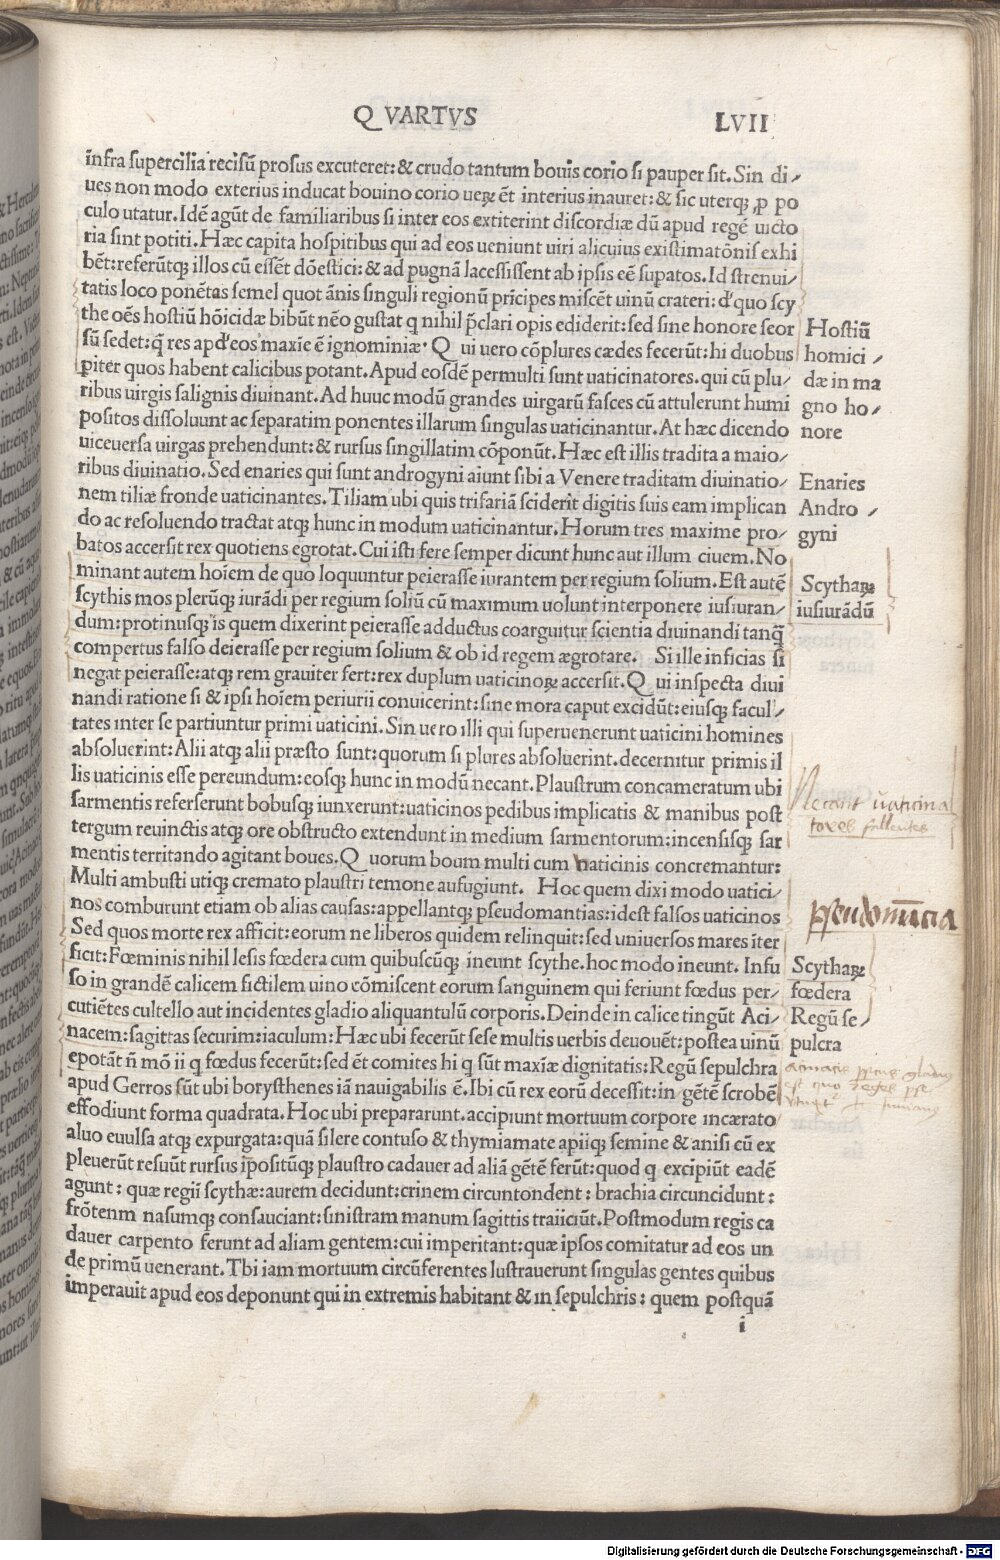 QVARTVS
LVII
infra supercilia recisū prosus excuteret: & crudo tantum bouis corio si pauper sit. Sin di⸗
ues non modo exterius inducat bouino corio ueꝝ ēt interius inauret: & sic uterqꝫ ꝓ po
culo utatur. Idē agūt de familiaribus si inter eos extiterint discordiæ dū apud regē uicto
ria sint potiti. Hæc capita hospitibus qui ad eos ueniunt uiri alicuius existimatōnis exhi
bēt: referūtqꝫ illos cū essēt dōestici: & ad pugnā lacessissent ab ipsis eē supatos. Id strenui⸗
tatis loco ponētas semel quot ānis singuli regionū prīcipes miscēt uinū crateri: d'quo scy
the oēs hostiū hōicidæ bibūt nēo gustat q nihil p̄clari opis ediderit: sed sine honore seor
sū sedet: q̄ res apd'eos maxīe ē ignominiæ. Qui uero cōplures cædes fecerūt: hi duobus
piter quos habent calicibus potant. Apud eosdē permulti sunt uaticinatores. qui cū plu⸗
ribus uirgis salignis diuinant. Ad huuc modū grandes uirgarū fasces cū attulerunt humi
positos dissoluunt ac separatim ponentes illarum singulas uaticinantur. At hæc dicendo
uiceuersa uirgas prehendunt: & rursus singillatim cōponūt. Hæc est illis tradita a maio⸗
ribus diuinatio. Sed enaries qui sunt androgyni aiunt sibi a Venere traditam diuinatio⸗
nem tiliæ fronde uaticinantes. Tiliam ubi quis trifariā sciderit digitis suis eam implican
do ac resoluendo tractat atqꝫ hunc in modum uaticinantur. Horum tres maxime pro⸗
batos accersit rex quotiens egrotat. Cui isti fere semper dicunt hunc aut illum ciuem. No
minant autem hoīem de quo loquuntur peierasse iurantem per regium solium. Est autē
scythis mos plerūqꝫ iurādi per regium soliū cū maximum uolunt interponere iusiuran⸗
dum: protinusqꝫ is quem dixerint peierasse adductus coarguitur scientia diuinandi tanq̄
compertus falso deierasse per regium solium & ob id regem ægrotare. Si ille inficias si
negat peierasse: atqꝫ rem grauiter fert: rex duplum uaticinoꝝ accersit. Qui inspecta diui
nandi ratione si & ipsi hoīem periurii conuicerint: sine mora caput excidūt: eiusqꝫ facul⸗
tates inter se partiuntur primi uaticini. Sin uero illi qui superuenerunt uaticini homines
absoluerint: Alii atqꝫ alii præsto sunt: quorum si plures absoluerint. decernitur primis il
lis uaticinis esse pereundum: eosqꝫ hunc in modū necant. Plaustrum concameratum ubi
sarmentis referserunt bobusqꝫ iunxerunt: uaticinos pedibus implicatis & manibus post
tergum reuinctis atqꝫ ore obstructo extendunt in medium sarmentorum: incensisqꝫ sar
mentis territando agitant boues. Quorum boum multi cum uaticinis concremantur:
Multi ambusti utiqꝫ cremato plaustri temone aufugiunt. Hoc quem dixi modo uatici⸗
nos comburunt etiam ob alias causas: appellantqꝫ pseudomantias: idest falsos uaticinos
Sed quos morte rex afficit: eorum ne liberos quidem relinquit: sed uniuersos mares īter
ficit: Fœminis nihil lesis fœdera cum quibuscūqꝫ ineunt scythe. hoc modo ineunt. Infu
so in grandē calicem fictilem uino cōmiscent eorum sanguinem qui feriunt fœdus per⸗
cutiētes cultello aut incidentes gladio aliquantulū corporis. Deinde in calice tingūt Aci⸗
nacem: sagittas securim: iaculum: Hæc ubi fecerūt sese multis uerbis deuouēt: postea uinū
epotāt n̄ mō ii q fœdus fecerūt: sed ēt comites hi q sūt maxīæ dignitatis: Regū sepulchra
apud Gerros sūt ubi borysthenes iā nauigabilis ē. Ibi cū rex eorū decessit: in gētē scrobē
effodiunt forma quadrata. Hoc ubi prepararunt. accipiunt mortuum corpore incærato
aluo euulsa atqꝫ expurgata: quā silere contuso & thymiamate apiiqꝫ semine & anisi cū ex
pleuerūt resuūt rursus īpositūqꝫ plaustro cadauer ad aliā gētē ferūt: quod q excipiūt eadē
agunt: quæ regii scythæ: aurem decidunt: crinem circuntondent: brachia circuncidunt:
frōtenm nasumqꝫ consauciant: sinistram manum sagittis traiiciūt. Postmodum regis ca
dauer carpento ferunt ad aliam gentem: cui imperitant: quæ ipsos comitatur ad eos un
de primū uenerant. Tbi iam mortuum circūferentes lustrauerunt singulas gentes quibus
imperauit apud eos deponunt qui in extremis habitant & in sepulchris: quem postquā
i
Hostiū
homici⸗
dæ in ma
gno ho⸗
nore
Enaries
Andro⸗
gyni
Scythaꝝ
iusiurādū
Necant uaticina
tores fallentes
pseudomātia
Scythaꝝ
fœdera
Regū se⸗
pulcra
Digitalisierung gefördert durch die Deutsche Forschungsgemeinschaft - DFG